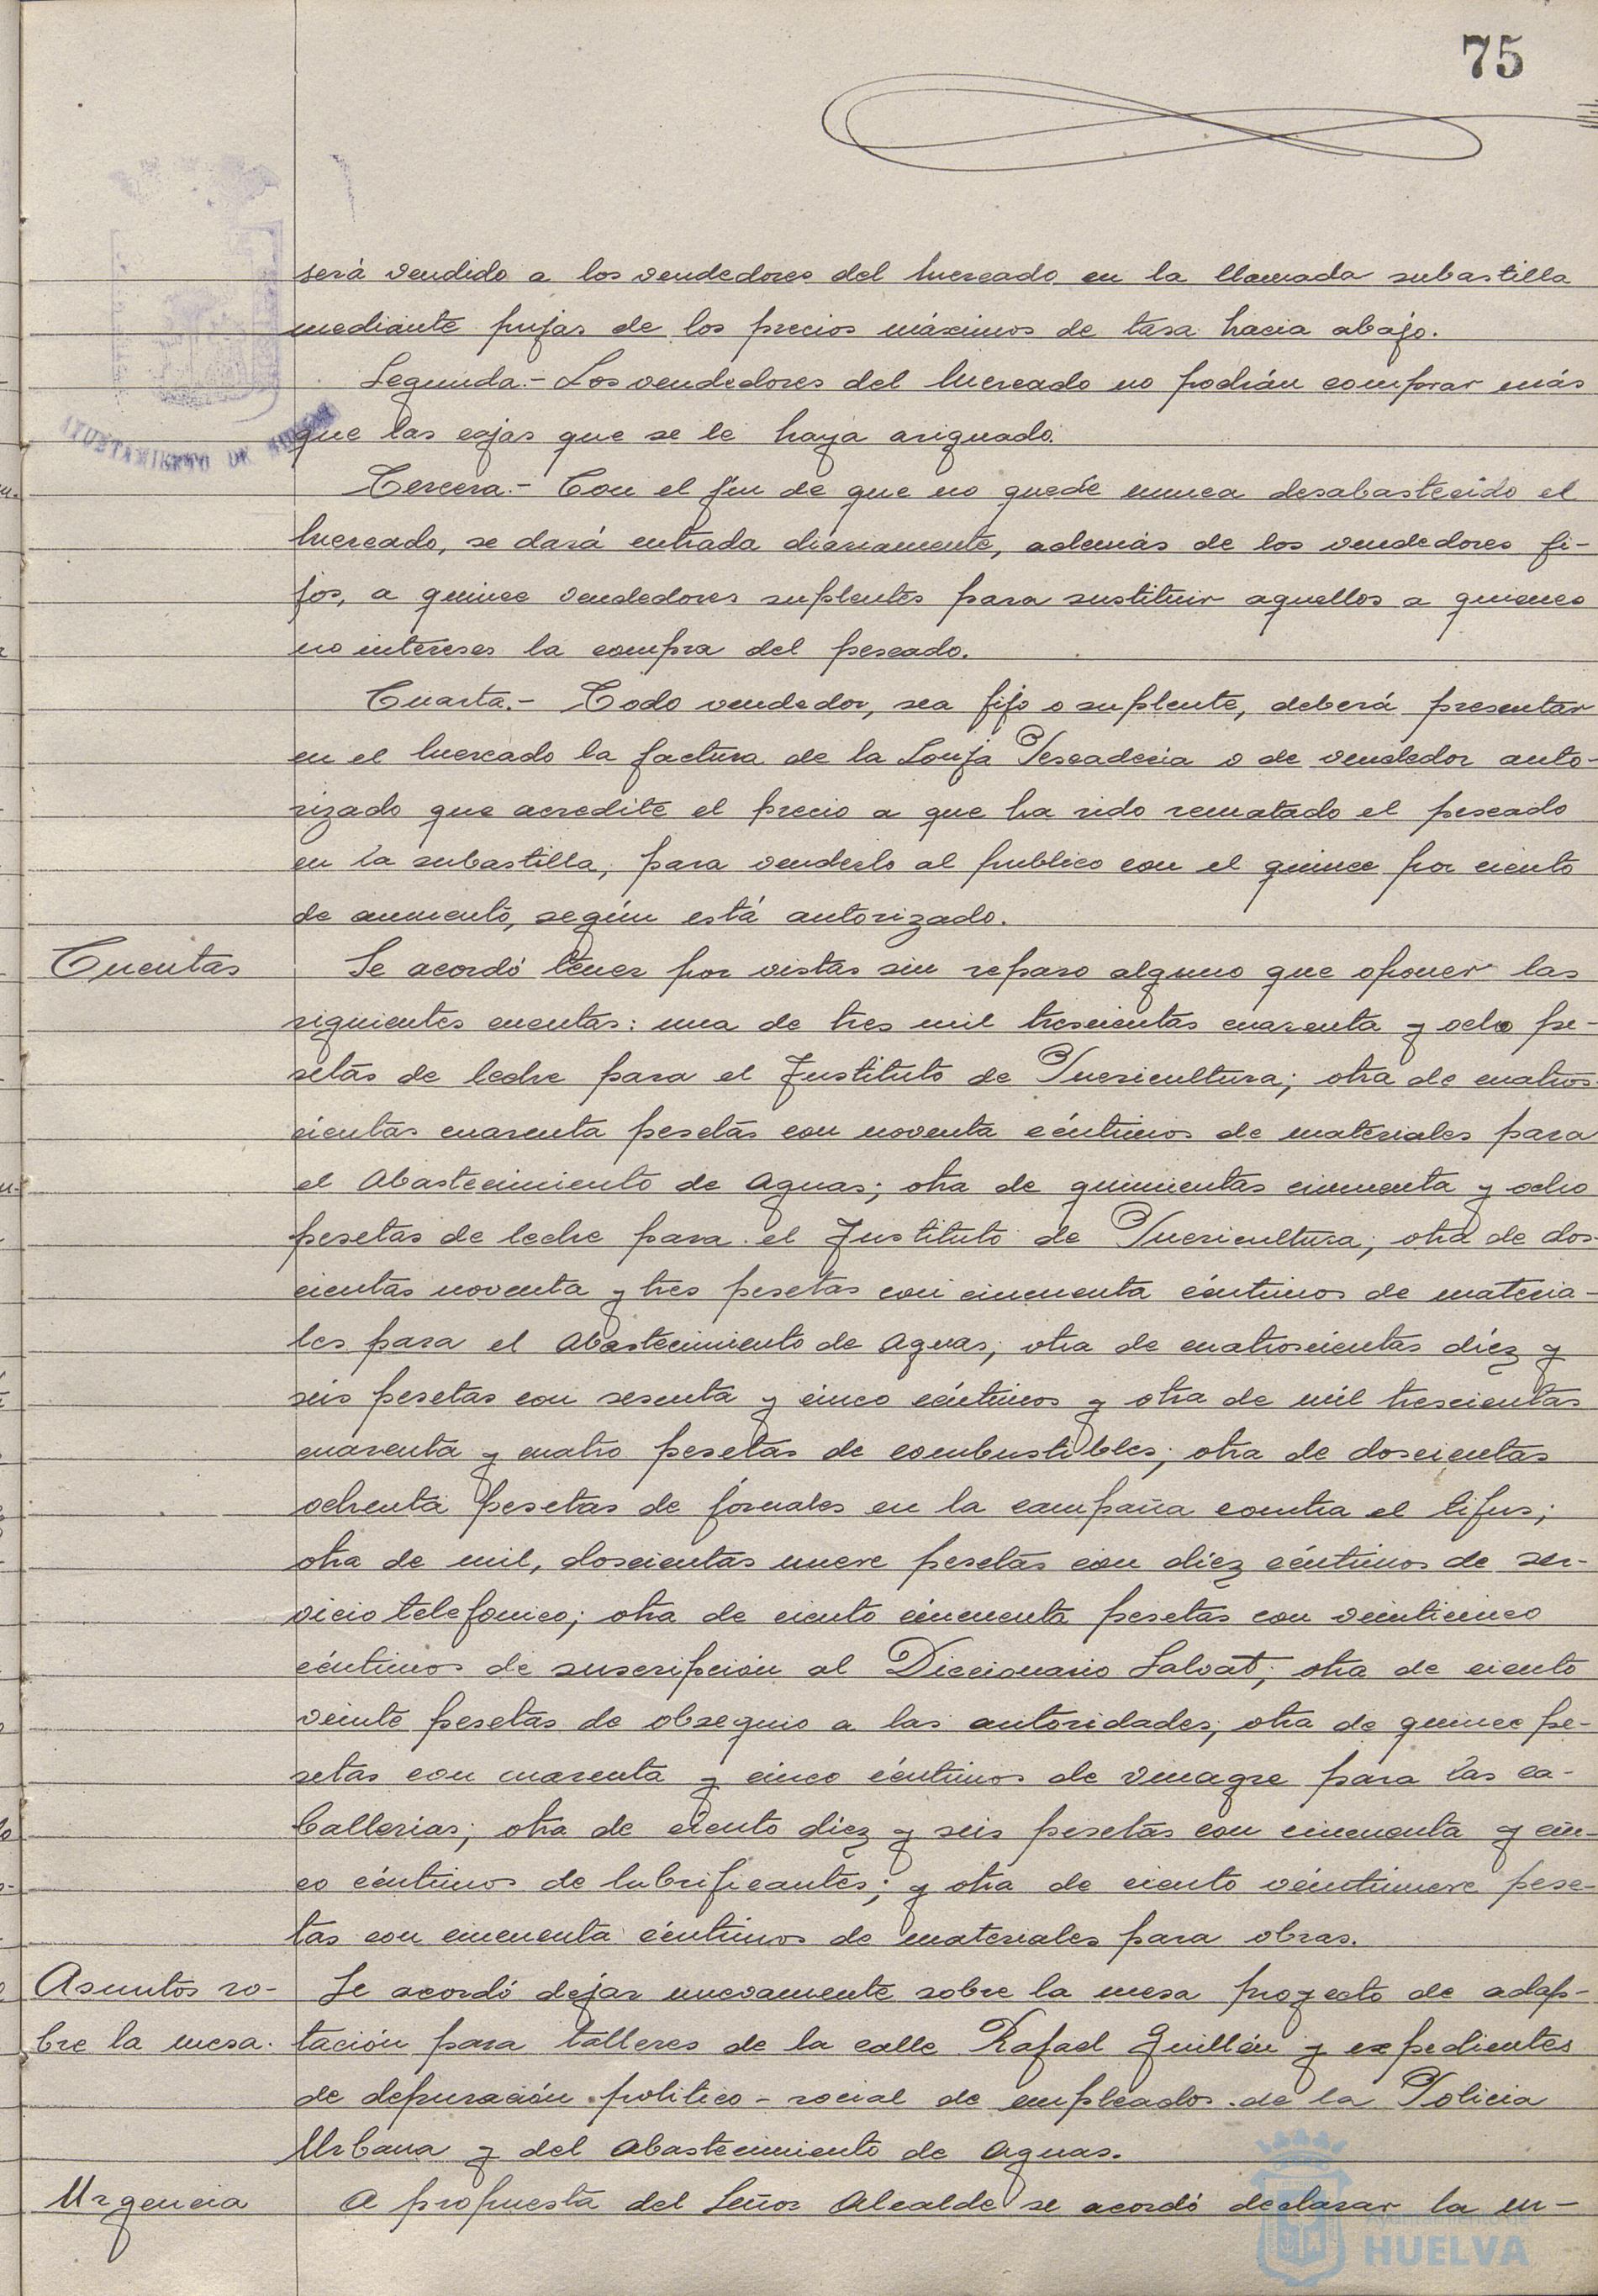 75
AYUNTAMIENTO DE HUELVA
será vendido a los vendedores del Mercado en la llamada subastilla
mediante pujas de los precios máximos de tasa hacia abajo.
Segunda.- Los vendedores del Mercado no podrán comprar más
que las cajas que se le haya asignado.
Tercera.- Con el fin de que no quede nunca desabastecido el
Mercado, se dará entrada diariamente, además de los vendedores fi-
jos, a quince vendedores suplentes para sustituir aquellos a quienes
no intereses la compra del pescado.
Cuarta.- Todo vendedor, sea fijo o suplente, deberá presentar
en el Mercado la factura de la Lonja Pescadería o de vendedor auto-
rizado que acredite el precio a que ha sido rematado el pescado
en la subastilla, para venderlo al publico con el quince por ciento
de aumento, según está autorizado.
Cuentas
Se acordó tener por vistas sin reparo alguno que oponer las
siguientes cuentas: una de tres mil trescientas cuarenta y ocho pe-
setas de leche para el Instituto de Puericultura; otra de cuatros-
cientas cuarenta pesetas con noventa céntimos de materiales para
el Abastecimiento de Aguas; otra de quinientas cincuenta y ocho
pesetas de leche para el Instituto de Puericultura; otra de dos-
cientas noventa y tres pesetas con cincuenta céntimos de materia-
les para el Abastecimiento de Aguas; otra de cuatroscientas diez y
seis pesetas con sesenta y cinco céntimos y otra de mil trescientas
cuarenta y cuatro pesetas de combustibles; otra de doscientas
ochenta pesetas de jornales en la campaña contra el tifus;
otra de mil, doscientas nueve pesetas con diez céntimos de ser-
vicio telefonico; otra de ciento cincuenta pesetas con veinticinco
céntimos de suscripción al Diccionario Salvat; otra de ciento
veinte pesetas de obsequio a las autoridades; otra de quince pe-
setas con cuarenta y cinco céntimos de vinagre para las ca-
ballerias; otra de ciento diez y seis pesetas con cincuenta y cin-
co céntimos de lubrificantes; y otra de ciento veintinueve pese-
tas con cincuenta céntimos de materiales para obras.
Asuntos so-
bre la mesa.
Se acordó dejar nuevamente sobre la mesa proyecto de adap-
tación para talleres de la calle Rafael Guillén y expedientes
de depuración politico-social de empleados de la Policia
Urbana y del Abastecimiento de Aguas.
Urgencia
A propuesta del Señor Alcalde se acordó declarar la ur-
Ayuntamiento de
HUELVA